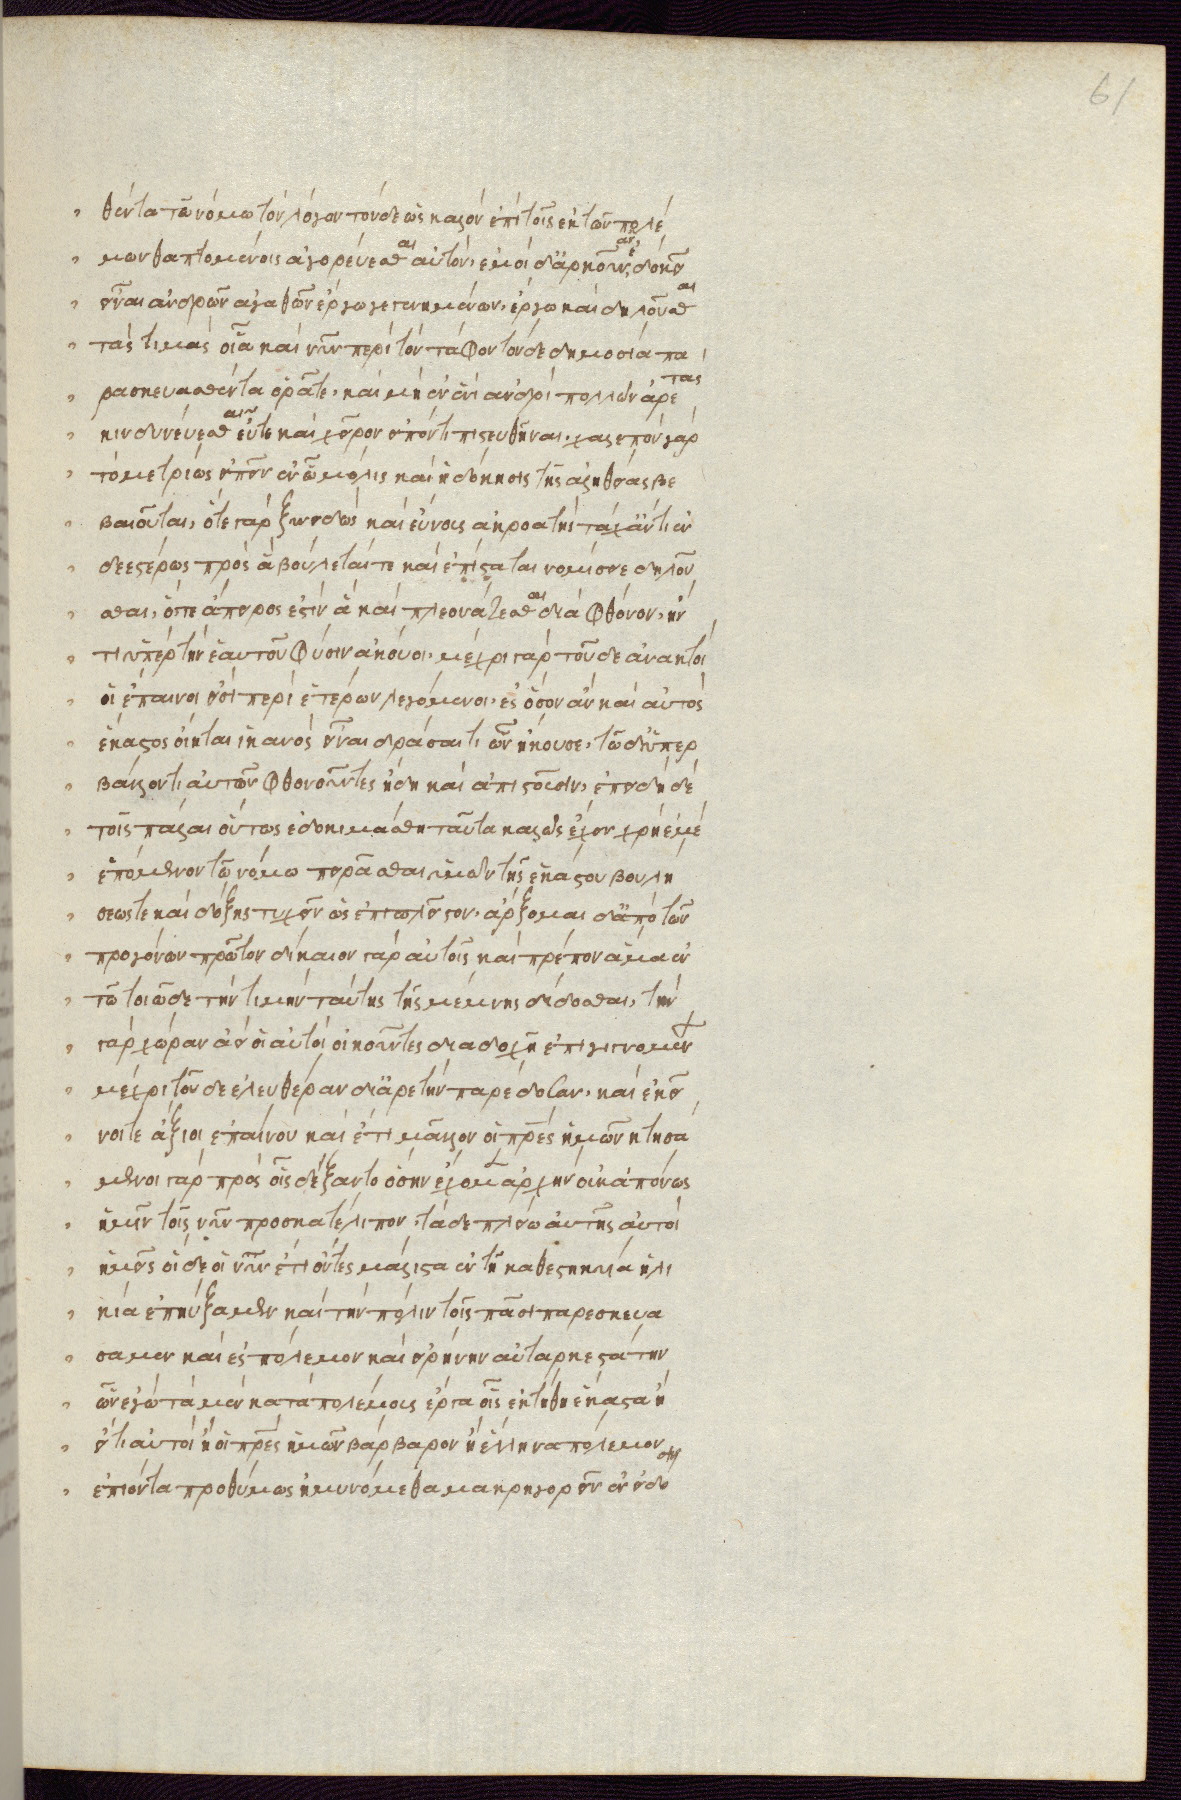 61
θέντα τῶ νόμω τὸν λόγον τόνδε ὡς καλὸν ἐπὶ τοῖς ἐκ τῶν πολέ
μων θαπτομένοις ἀγορεύεσθαι αὐτόν, ἐμοὶ δ' ἀρκοῦν ἂν ἐδόκει
εἶναι ἀνδρῶν ἀγαθῶν ἔργω γενομένων, ἔργω καὶ δηλοῦσθαι
τὰς τιμὰς οἷα καὶ νῦν περὶ τὸν τάφον τόνδε δημοσία πα
ρασκευασθέντα ὁρᾶτε, καὶ μὴ ἐν ἑνὶ ἀνδρὶ πολλῶν ἀρετὰς
κινδυνεύεσθαι εὖ τε καὶ χεῖρον εἰπόντι πιστευθῆναι, χαλεπὸν γὰρ
τὸ μετρίως εἰπεῖν ἐν ὧ μόλις καὶ ἡ δόκησις τῆς ἀληθείας βε
βαιοῦται, ὅτε γὰρ ξυνειδὼς καὶ εὔνους ἀκροατὴς τάχ' ἄν τι ἐν
δεεστέρως πρὸς ἃ βούλεταί τε καὶ ἐπίσταται νομίσειε δηλοῦ
σθαι, ὅ τε ἄπειρος ἐστὶν ἃ καὶ πλεονάζεσθαι διὰ φθόνον, εἴ
τι ὑπὲρ τὴν ἑαυτοῦ φύσιν ἀκούοι, μέχρι γὰρ τοῦδε ἀνεκτοὶ
οἱ ἔπαινοι εἰσὶ περὶ ἑτέρων λεγόμενοι, ἐς ὅσον ἂν καὶ αὐτὸς
ἕκαστος οἴηται ἱκανὸς εἶναι δρᾶσαί τι ὧν ἤκουσε, τῶ δ' ὑπερ
βάλλοντι αὐτῶν φθονοῦντες ἤδη καὶ ἀπιστοῦσιν, ἐπειδὴ δὲ
τοῖς πάλαι οὕτως ἐδοκιμάσθη ταῦτα καλῶς ἔχειν χρὴ ἐμὲ
ἑπόμενον τῶ νόμω πειρᾶσθαι ὑμῶν τῆς ἑκάστου βουλή
σεώς τε καὶ δόξης τυχεῖν ὡς ἐπὶ πλεῖστον, ἄρξομαι δ' ἀπὸ τῶν
προγόνων πρῶτον δίκαιον γὰρ αὐτοῖς καὶ πρέπον ἅμα ἐν
τῶ τοιῶδε τὴν τιμὴν ταύτης τῆς μνήμης δίδοσθαι, τὴν
γὰρ χώραν ἀεὶ οἱ αὐτοὶ οἰκοῦντες διαδοχῆ ἐπιγιγνομένων
μέχρι τοῦδε ἐλευθέραν δι' ἀρετὴν παρέδοσαν, καὶ ἐκεῖ
νοί τε ἄξιοι ἐπαίνου καὶ ἔτι μᾶλλον οἱ πρες ἡμῶν κτησά
μενοι γὰρ πρὸς οἷς ἐδέξαντο ὅσην ἔχομεν ἀρχὴν οὐκ ἀπόνως
ἡμῖν τοῖς νῦν προσκατέλιπον, τὰ δὲ πλείω αὐτῆς αὐτοὶ
ἡμεῖς οἵδε οἱ νῦν ἔτι ὄντες μάλιστα ἐν τῆ καθεστηκυία ἡλι
κία ἐπηυξήσαμεν καὶ τὴν πόλιν τοῖς πᾶσι παρεσκευά
σαμεν καὶ ἐς πόλεμον καὶ εἰρήνην αὐταρκεστάτην
ὧν ἐγὼ τὰ μὲν κατὰ πολέμους ἔργα οἷς ἐκτήθη ἕκαστα ἢ
εἴ τι αὐτοὶ ἢ οἱ πρες ἡμῶν βάρβαρον ἢ ἕλληνα πόλεμον
ἐπιόντα προθύμως ἠμυνόμεθα μακρηγορεῖν ἐν εἰδόσιν